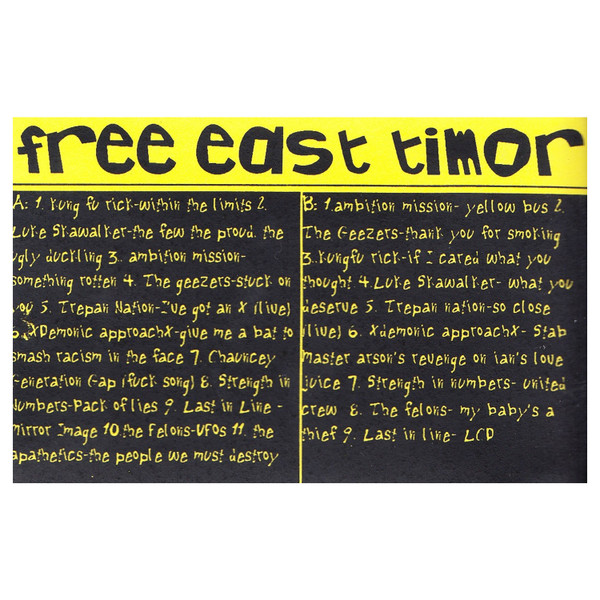 free east timor
A: 1. kung fu rick-within the limits 2.
Luke Skawalker-the few the proud. the
ugly duckling 3. ambition mission-
something rotten 4. The geezers-stuck on
you 5. Trepan Nation-I've got an X (live)
6. XDemonic approachX-give me a bat to
smash racism in the face 7. Chauncey
Generation Gap (fuck song) 8. Strength in
Numbers-Pack of lies 9. Last in Line -
mirror Image 10.the Felons-UFOs 11. the
apathetics-the people we must destroy
B: 1.ambition mission- yellow bus 2.
The Geezers-thank you for smoking
3..kungfu rick-if I cared what you
thought 4.Luke Skawalker- what you
deserve 5. Trepan nation-so close
(live) 6. Xdemonic approachX- Stab
master arson's revenge on ian's love
juice 7. Strength in numbers- united
crew 8. The felons- my baby's a
thief 9. Last in line- LCD